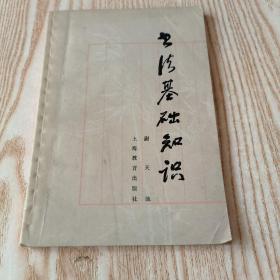 书法基础知识
谢天
上海教育出版社